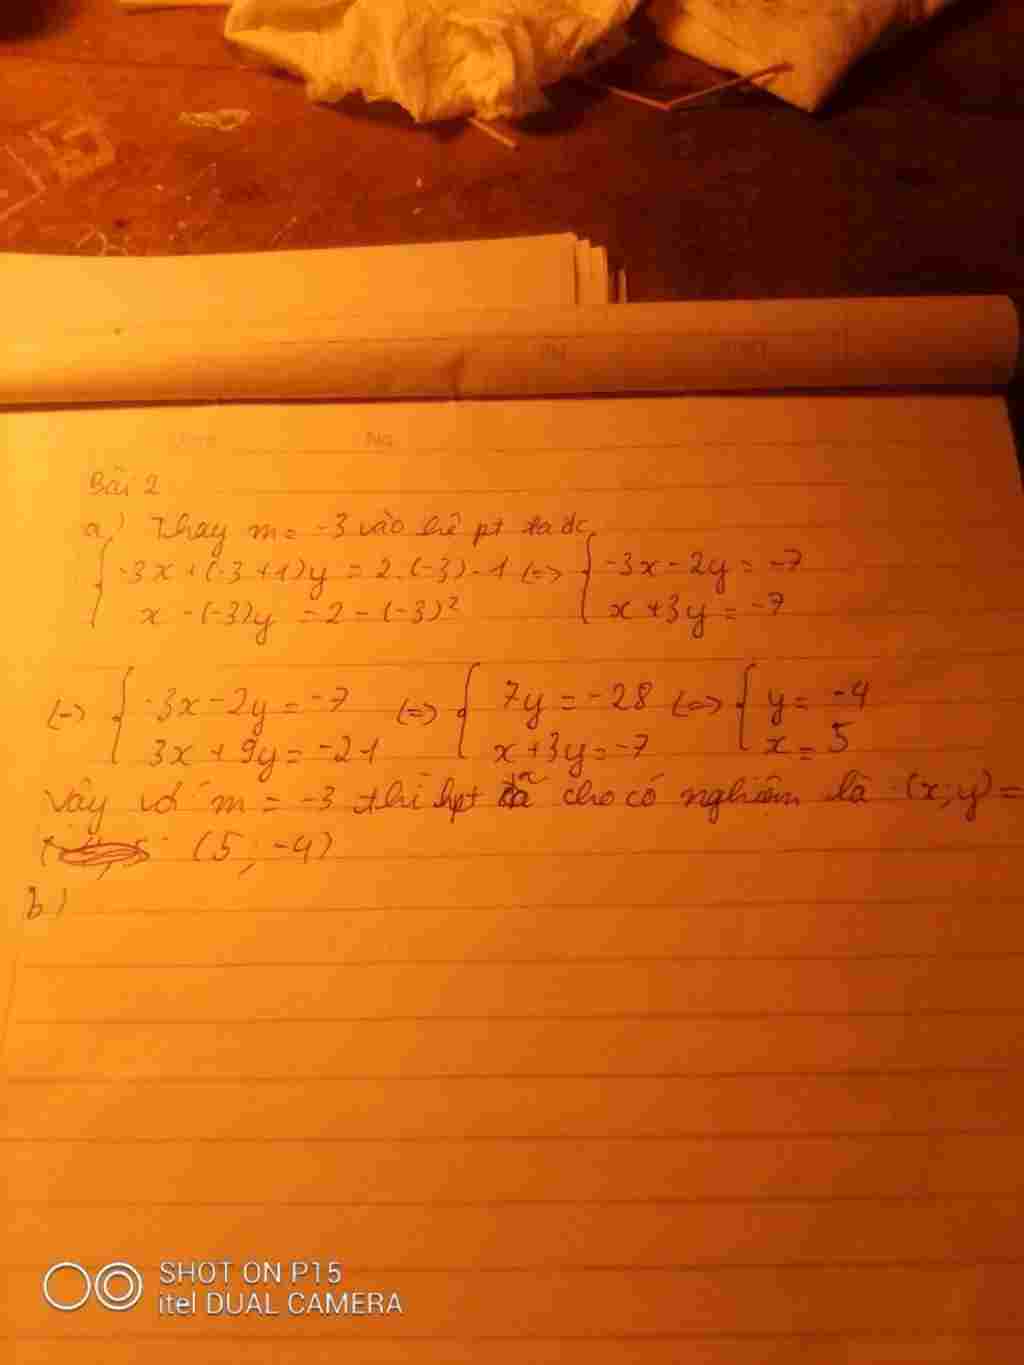 Bài 2
a) Thay m = -3 vào hệ pt ta đc
{ -3x + (-3+1)y = 2.(-3) - 1 <=> { -3x - 2y = -7
x - (-3)y = 2 - (-3)² x + 3y = -7
<=> { -3x - 2y = -7 <=> { 7y = -28 <=> { y = -4
3x + 9y = -21 x + 3y = -7 x = 5
Vậy với m = -3 thì hpt đã cho có nghiệm là (x;y) =
(5; -4)
b)
SHOT ON P15
itel DUAL CAMERA